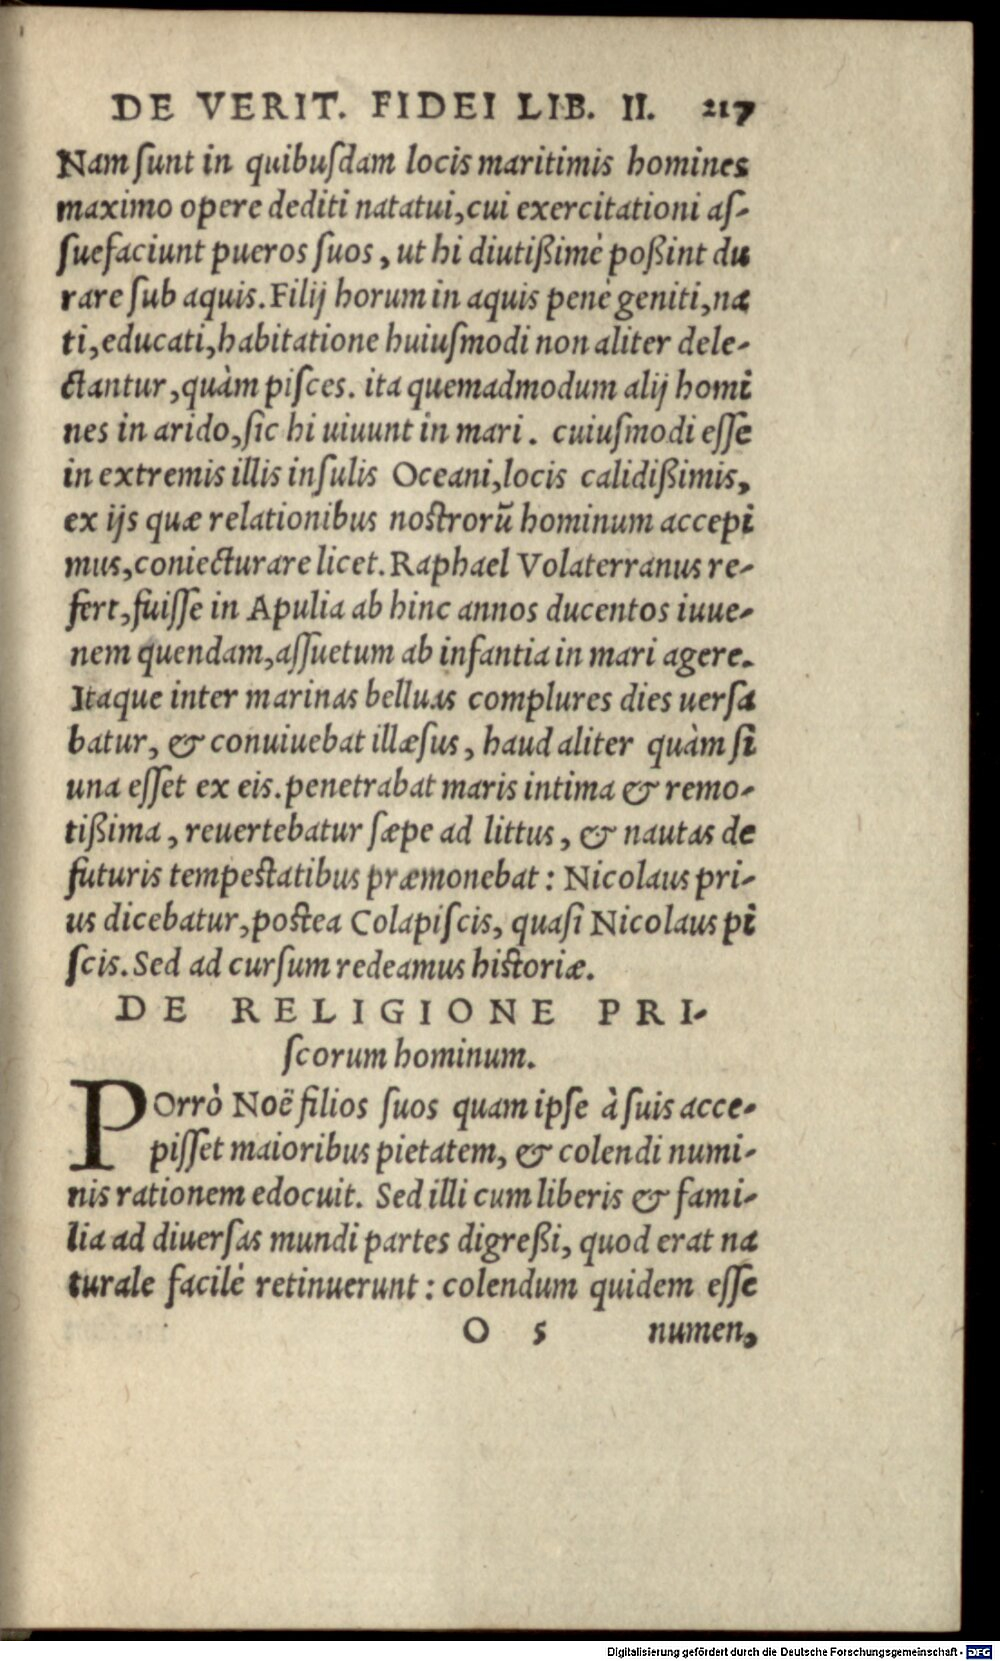 DE VERIT. FIDEI LIB. II. 217
Nam ſunt in quibuſdam locis maritimis homines
maximo opere dediti natatui, cui exercitationi aſ-
ſuefaciunt pueros ſuos, ut hi diutißimè poßint du
rare ſub aquis. Filij horum in aquis penè geniti, na
ti, educati, habitatione huiuſmodi non aliter dele-
ctantur, quàm piſces. ita quemadmodum alij homi
nes in arido, ſic hi uiuunt in mari. cuiuſmodi eſſe
in extremis illis inſulis Oceani, locis calidißimis,
ex ijs quæ relationibus noſtrorũ hominum accepi
mus, coniecturare licet. Raphael Volaterranus re-
fert, fuiſſe in Apulia ab hinc annos ducentos iuue-
nem quendam, aſſuetum ab infantia in mari agere.
Itaque inter marinas belluas complures dies uerſa
batur, & conuiuebat illæſus, haud aliter quàm ſi
una eſſet ex eis. penetrabat maris intima & remo-
tißima, reuertebatur ſæpe ad littus, & nautas de
futuris tempeſtatibus præmonebat: Nicolaus pri-
us dicebatur, poſtea Colapiſcis, quaſi Nicolaus pi
ſcis. Sed ad curſum redeamus hiſtoriæ.
DE RELIGIONE PRI-
ſcorum hominum.
POrrò Noë filios ſuos quam ipſe à ſuis acce-
piſſet maioribus pietatem, & colendi numi-
nis rationem edocuit. Sed illi cum liberis & fami-
lia ad diuerſas mundi partes digreßi, quod erat na
turale facilè retinuerunt: colendum quidem eſſe
O 5 numen,
Digitalisierung gefördert durch die Deutsche Forschungsgemeinschaft - DFG